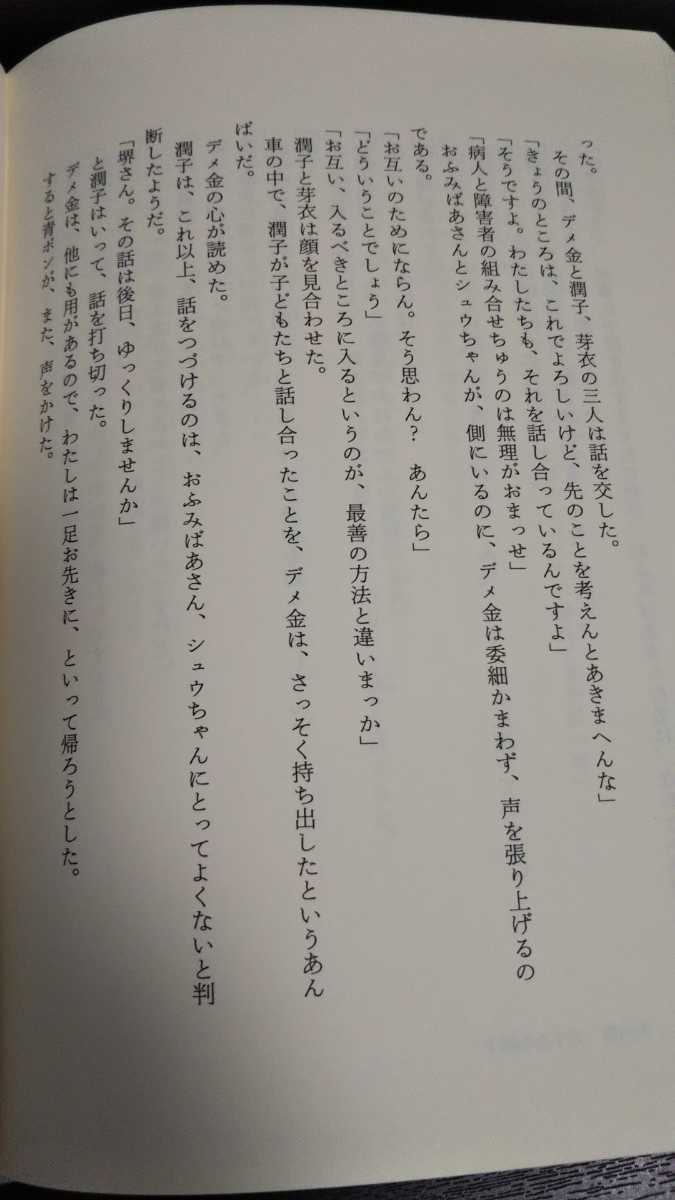 った。
その間、デメ金と潤子、芽衣の三人は話を交した。
「きょうのところは、これでよろしいけど、先のことを考えんとあきまへんな」
「そうですよ。わたしたちも、それを話し合っているんですよ」
「病人と障害者の組み合せちゅうのは無理がおまっせ」
おふみばあさんとシュウちゃんが、側にいるのに、デメ金は委細かまわず、声を張り上げるの
である。
「お互いのためにならん。そう思わん？　あんたら」
「どういうことでしょう」
「お互い、入るべきところに入るというのが、最善の方法と違いまっか」
潤子と芽衣は顔を見合わせた。
車の中で、潤子が子どもたちと話し合ったことを、デメ金は、さっそく持ち出したというあん
ばいだ。
デメ金の心が読めた。
潤子は、これ以上、話をつづけるのは、おふみばあさん、シュウちゃんにとってよくないと判
断したようだ。
「堺さん。その話は後日、ゆっくりしませんか」
と潤子はいって、話を打ち切った。
デメ金は、他にも用があるので、わたしは一足お先きに、といって帰ろうとした。
すると青ポンが、また、声をかけた。